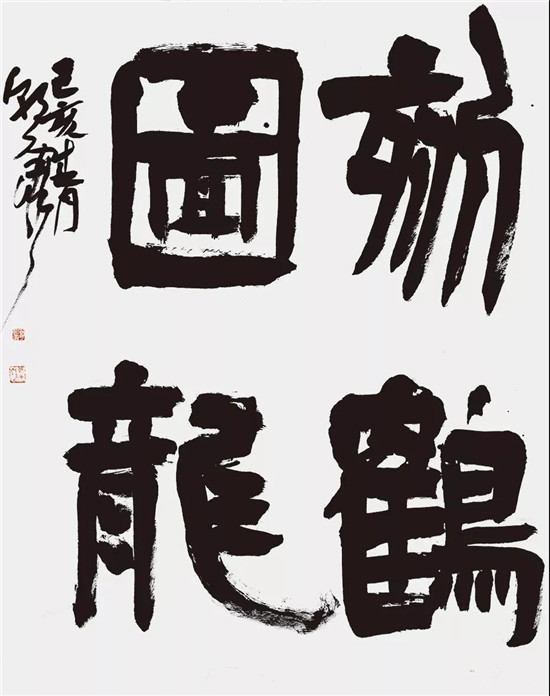 刻鶴
圖龍
己亥